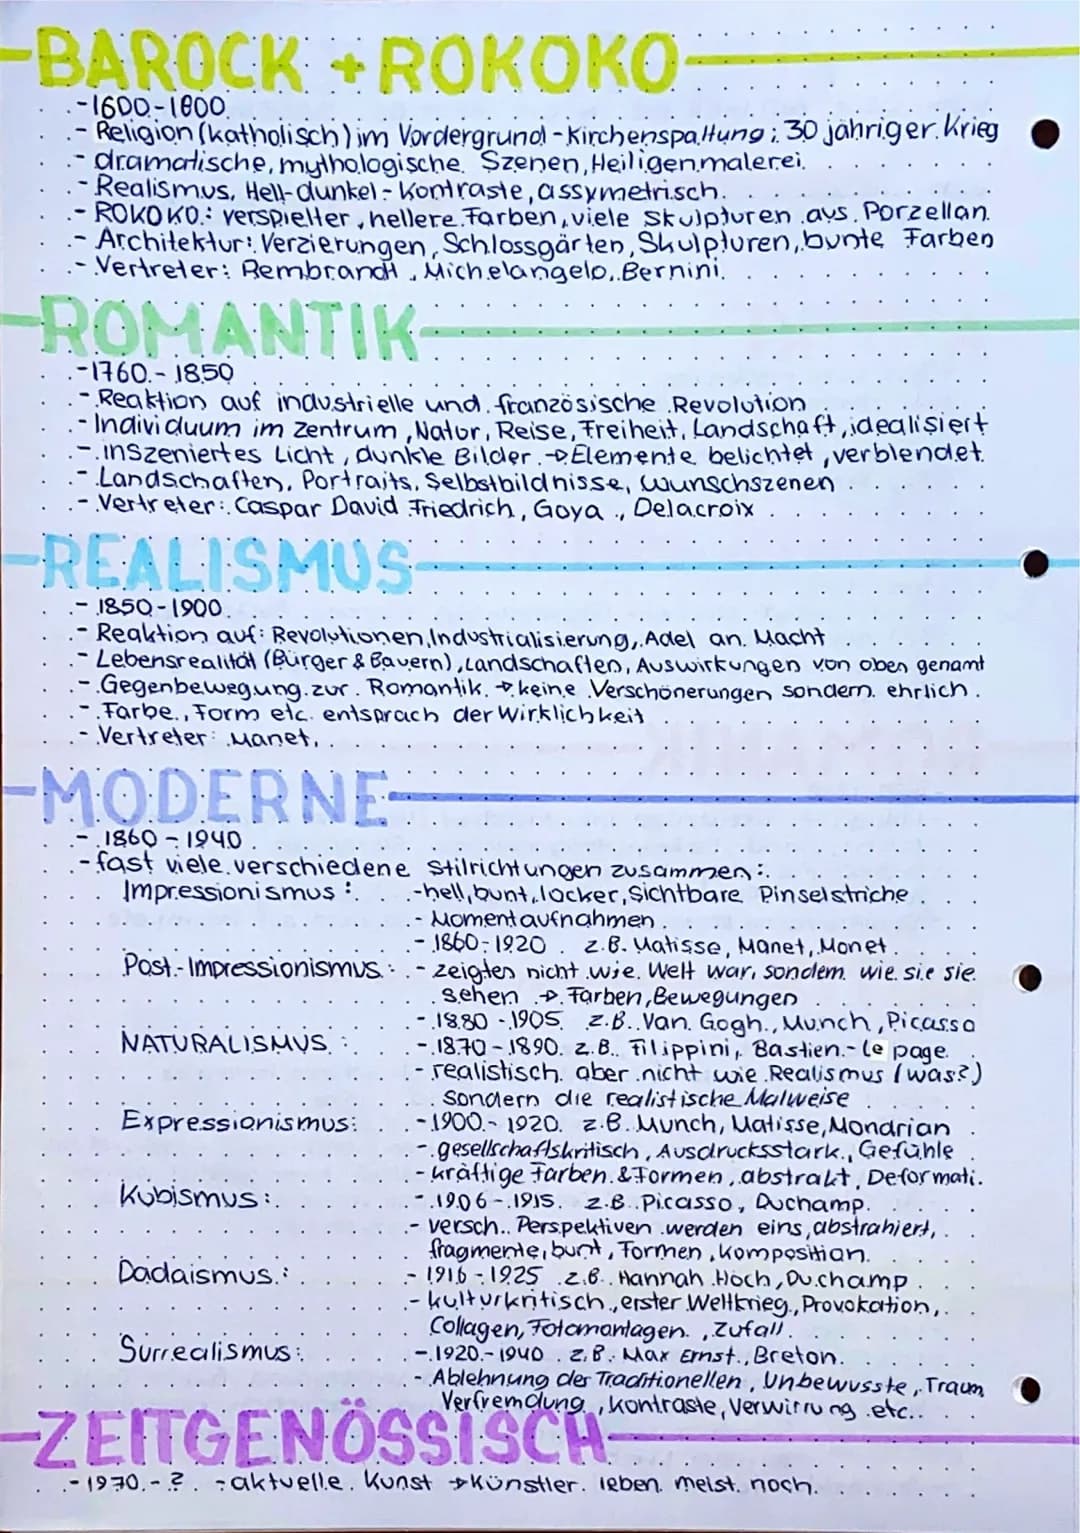 BAROCK + ROKOKO
- 1600-1800
- Religion (katholisch) im Vordergrund - Kirchenspaltung; 30 jähriger Krieg
- dramatische, mythologische Szenen, Heiligenmalerei
- Realismus, Hell-dunkel-Kontraste, assymetrisch
- ROKOKO: verspielter, hellere Farben, viele Skulpturen aus Porzellan
- Architektur: Verzierungen, Schlossgärten, Skulpturen, bunte Farben
- Vertreter: Rembrandt, Michelangelo, Bernini
ROMANTIK
- 1760 - 1850
- Reaktion auf industrielle und französische Revolution
- Individuum im Zentrum, Natur, Reise, Freiheit, Landschaft, idealisiert
- inszeniertes Licht, dunkle Bilder → Elemente belichtet, verblendet
- Landschaften, Portraits, Selbstbildnisse, Wunschszenen
- Vertreter: Caspar David Friedrich, Goya, Delacroix
REALISMUS
- 1850-1900
- Reaktion auf: Revolutionen, Industrialisierung, Adel an Macht
- Lebensrealität (Bürger & Bauern), Landschaften, Auswirkungen von oben genamt
- Gegenbewegung zur Romantik → keine Verschönerungen sondern ehrlich
- Farbe, Form etc. entsprach der Wirklichkeit
- Vertreter: Manet,
MODERNE
- 1860 - 1940
- fast viele verschiedene Stilrichtungen zusammen:
Impressionismus: - hell, bunt, locker, Sichtbare Pinselstriche
- Momentaufnahmen
- 1860-1920 z.B. Matisse, Manet, Monet
Post-Impressionismus: - zeigten nicht wie Welt war, sondern wie sie sie
sehen → Farben, Bewegungen
- 1880-1905 z.B. Van Gogh, Munch, Picasso
NATURALISMUS: - 1870-1890 z.B. Filippini, Bastien-Le page
- realistisch aber nicht wie Realismus (was?)
sondern die realistische Malweise
Expressionismus: - 1900-1920 z.B. Munch, Matisse, Mondrian
- gesellschaftskritisch, Ausdrucksstark, Gefühle
- kräftige Farben & Formen, abstrakt, Deformati.
Kubismus: - 1906-1915 z.B. Picasso, Duchamp
- versch. Perspektiven werden eins, abstrahiert,
fragmente, bunt, Formen, Komposition
Dadaismus: - 1916-1925 z.B. Hannah Höch, Duchamp
- kulturkritisch, erster Weltkrieg, Provokation,
Collagen, Fotomontagen, Zufall
Surrealismus: - 1920-1940 z.B. Max Ernst, Breton
- Ablehnung des Traditionellen, Unbewusste, Traum
Verfremdung, Kontraste, Verwirrung etc.
ZEITGENÖSSISCH
- 1970 - ? - aktuelle Kunst → Künstler leben meist noch.